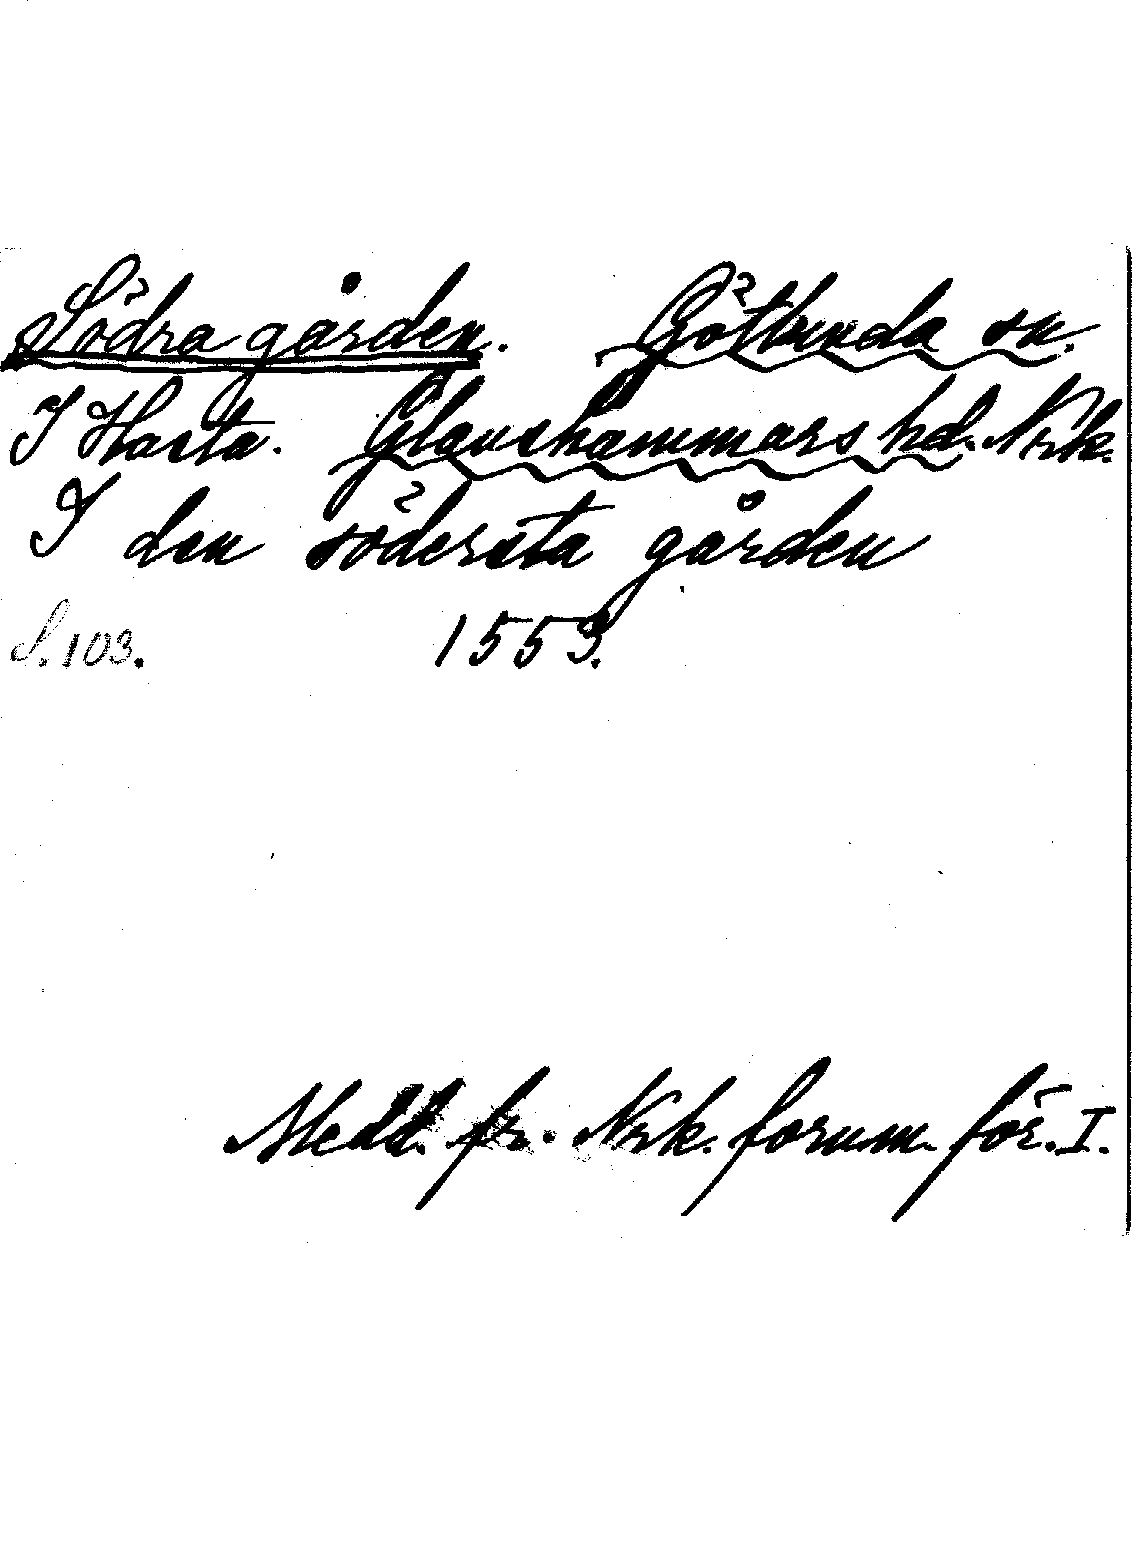 Södra gården. Götlunda sn.
I Hasta. Glanshammars hd. Nrk.
I den södersta gården
S. 103. 1553.
Medd. fr. Nrk. fornm. för. I.